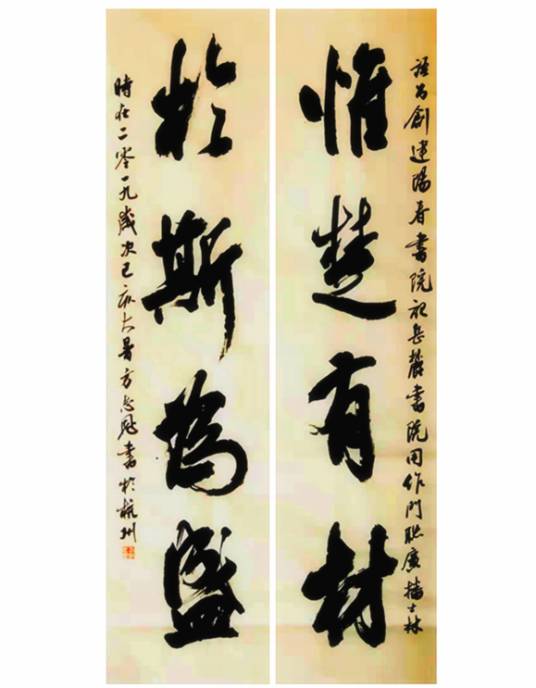 創建陽春書院岳麓書院用作門聯廣播士林
惟楚有材
於斯為盛
時在二零一九歲次己亥大暑方志書於杭州